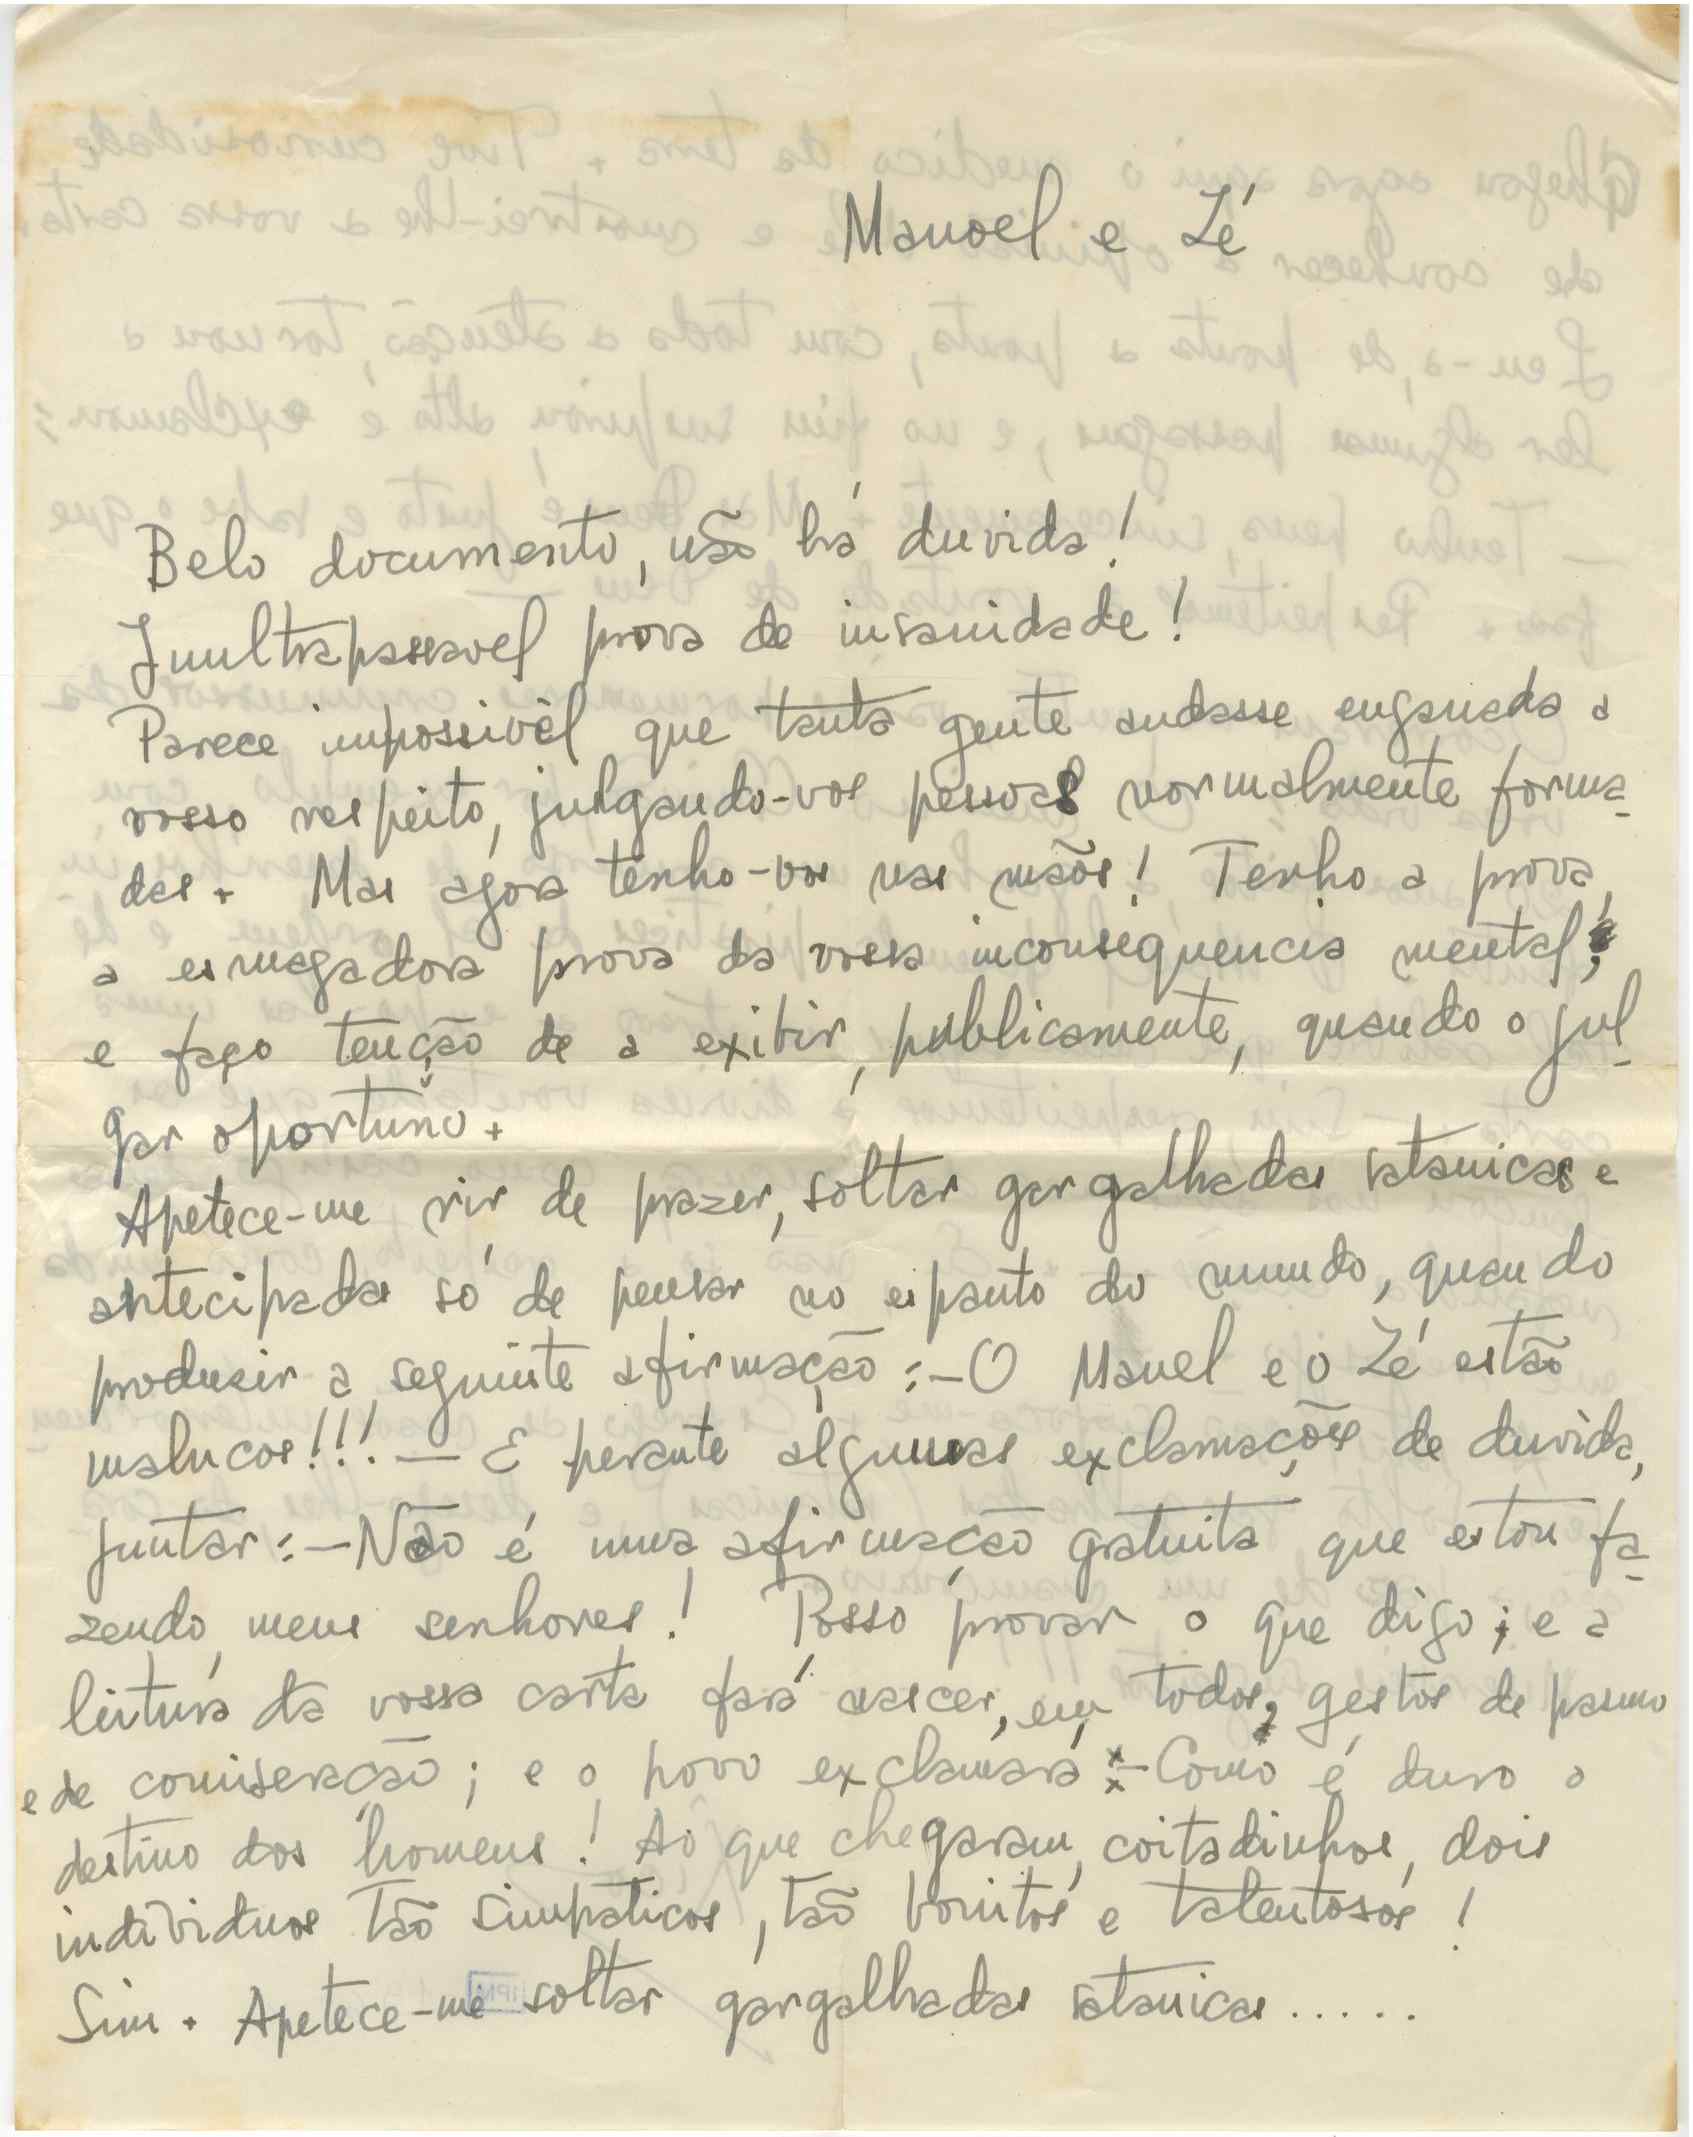 Manoel e Zé
Belo documento, não há duvida!
Inultrapassavel prova de insanidade!
Parece impossivel que tanta gente andasse enganada a
vosso respeito, julgando-vos pessoas normalmente forma-
das. Mas agora tenho-vos nas mãos! Tenho a prova,
a esmagadora prova da vossa inconsequencia mental;
e faço tenção de a exibir, publicamente, quando o jul-
gar oportuno.
Apetece-me rir de prazer, soltar gargalhadas satanicas e
antecipadas só de pensar no espanto do mundo, quando
produsir a seguinte afirmação:-O Manel e o Zé estão
malucos!!!.- E perante algumas exclamações de duvida,
juntar:-Não é uma afirmação gratuita que estou fa-
zendo, meus senhores! Posso provar o que digo; e a
leitura da vossa carta fará nascer, em todos, gestos de pasmo
e de comiseração; e o povo exclamará:-Como é duro o
destino dos homens! Ao que chegaram, coitadinhos, dois
individuos tão simpaticos, tão bonitos e talentosos!
Sim. Apetece-me soltar gargalhadas satanicas.....